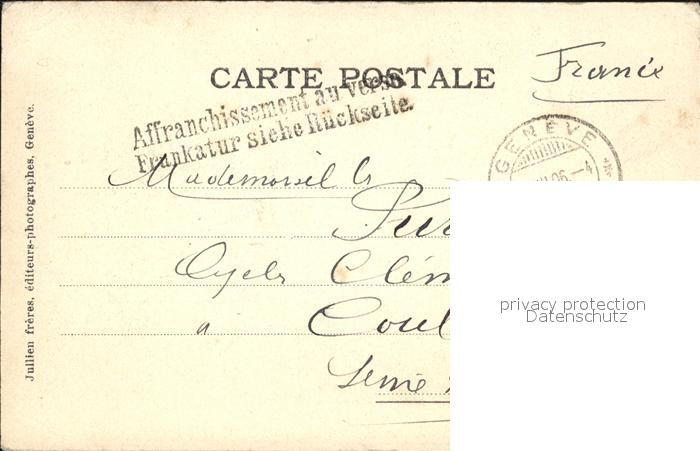 CARTE POSTALE
France
Affranchissement au verso
Frankatur siehe Rückseite.
GENÈVE
06.–4
Mademoiselle
Cycles Clém
a Coul
Seine
Jullien frères, éditeurs-photographes, Genève.
privacy protection
Datenschutz